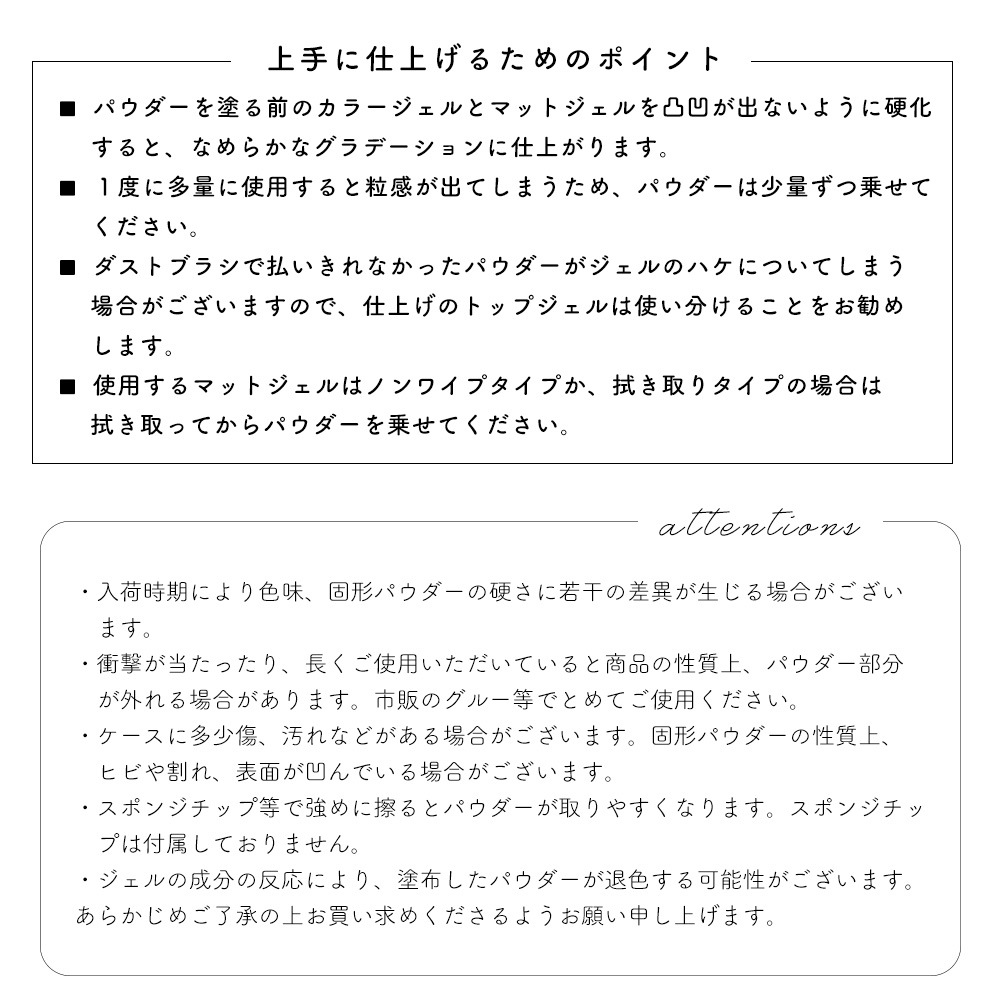 上手に仕上げるためのポイント
■ パウダーを塗る前のカラージェルとマットジェルを凸凹が出ないように硬化
すると、なめらかなグラデーションに仕上がります。
■ １度に多量に使用すると粒感が出てしまうため、パウダーは少量ずつ乗せて
ください。
■ ダストブラシで払いきれなかったパウダーがジェルのハケについてしまう
場合がございますので、仕上げのトップジェルは使い分けることをお勧め
します。
■ 使用するマットジェルはノンワイプタイプか、拭き取りタイプの場合は
拭き取ってからパウダーを乗せてください。
attentions
・入荷時期により色味、固形パウダーの硬さに若干の差異が生じる場合がござい
ます。
・衝撃が当たったり、長くご使用いただいていると商品の性質上、パウダー部分
が外れる場合があります。市販のグルー等でとめてご使用ください。
・ケースに多少傷、汚れなどがある場合がございます。固形パウダーの性質上、
ヒビや割れ、表面が凹んでいる場合がございます。
・スポンジチップ等で強めに擦るとパウダーが取りやすくなります。スポンジチッ
プは付属しておりません。
・ジェルの成分の反応により、塗布したパウダーが退色する可能性がございます。
あらかじめご了承の上お買い求めくださるようお願い申し上げます。